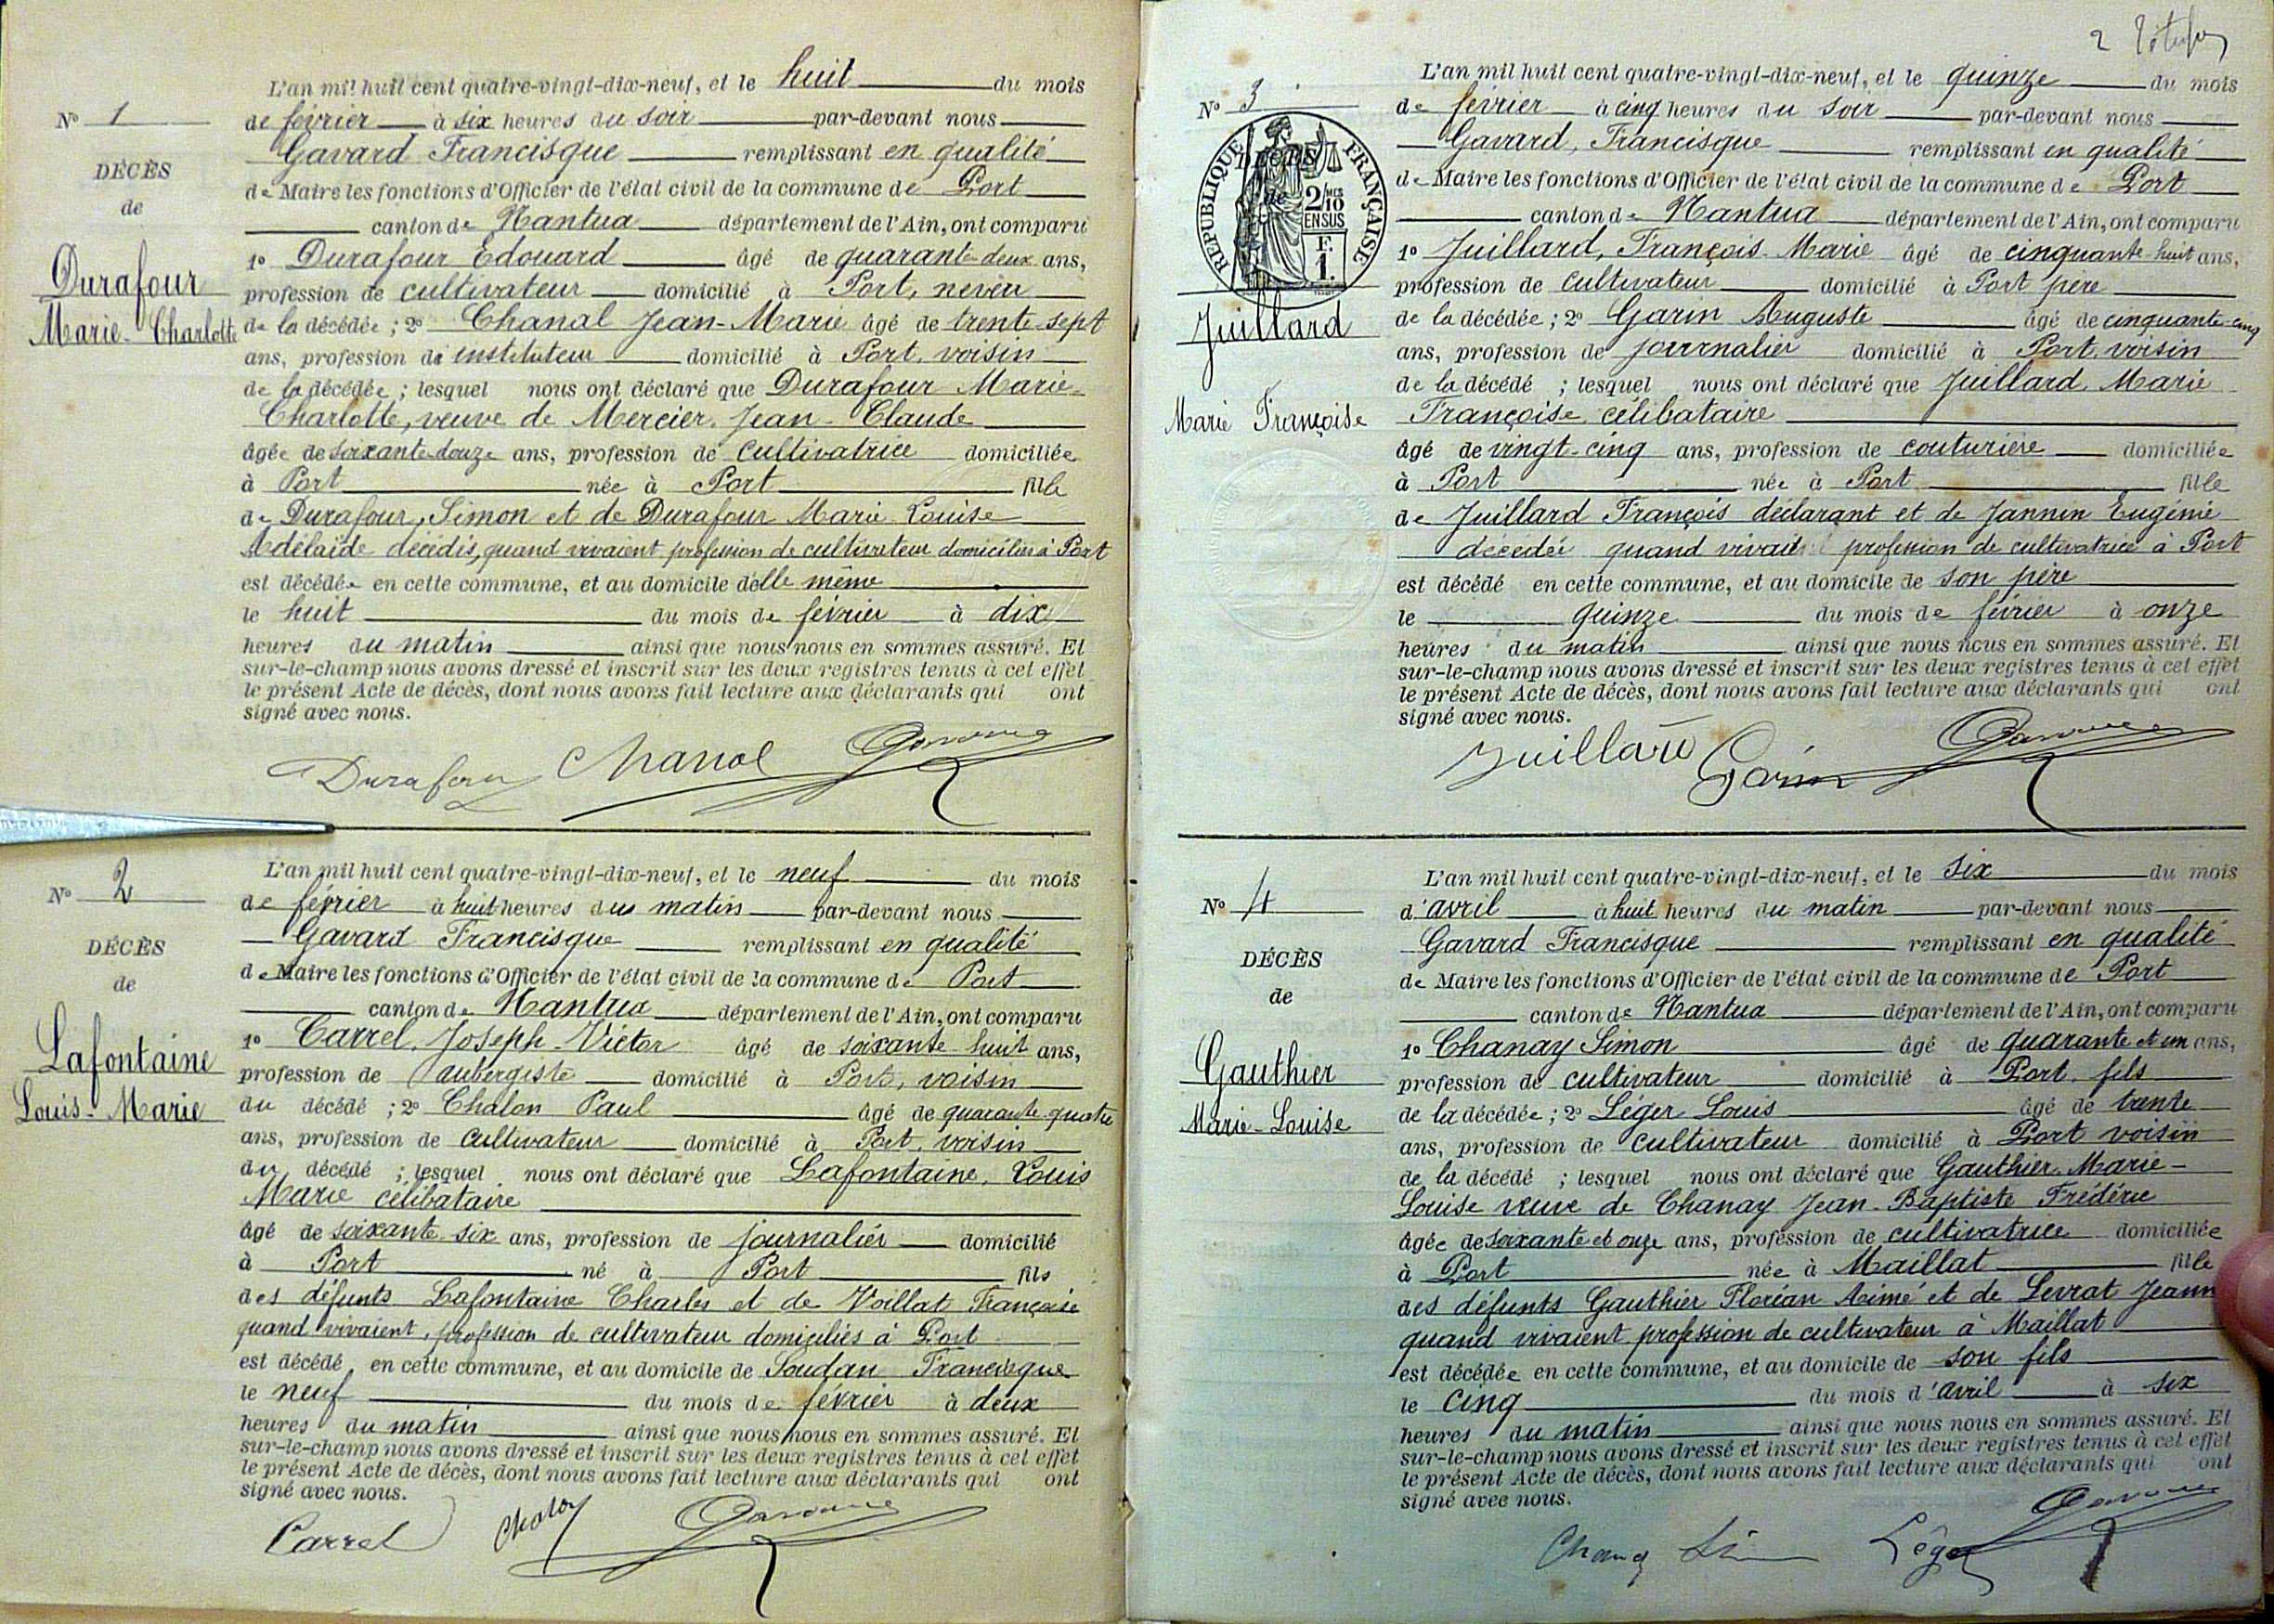 L'an mil huit cent quatre-vingt-dix-neuf, et le huit du mois
de février à six heures du soir par-devant nous
Gavard Francisque remplissant en qualité
de Maire les fonctions d'Officier de l'état civil de la commune de Port
canton de Nantua département de l'Ain, ont comparu
1º Durafour Edouard âgé de quarante-deux ans,
profession de cultivateur domicilié à Port, neveu
de la décédée ; 2º Chanal Jean-Marie âgé de trente-sept
ans, profession de instituteur domicilié à Port, voisin
de la décédée ; lesquel nous ont déclaré que Durafour Marie-
Charlotte, veuve de Mercier Jean-Claude
âgée de soixante-douze ans, profession de cultivatrice domiciliée
à Port née à Port fille
de Durafour, Simon et de Durafour Marie Louise
Adélaïde décédés, quand vivaient profession de cultivateur domiciliés à Port
est décédée en cette commune, et au domicile d'elle même
le huit du mois de février à dix
heures du matin ainsi que nous nous en sommes assuré. Et
sur-le-champ nous avons dressé et inscrit sur les deux registres tenus à cet effet
le présent Acte de décès, dont nous avons fait lecture aux déclarants qui ont
signé avec nous.
Nº 1
DÉCÈS
de
Durafour
Marie-Charlotte
Durafour Chanal Gavard
L'an mil huit cent quatre-vingt-dix-neuf, et le neuf du mois
de février à huit heures du matin par-devant nous
Gavard Francisque remplissant en qualité
de Maire les fonctions d'Officier de l'état civil de la commune de Port
canton de Nantua département de l'Ain, ont comparu
1º Carrel, Joseph-Victor âgé de soixante-huit ans,
profession de aubergiste domicilié à Port, voisin
du décédé ; 2º Chalon Paul âgé de quarante-quatre
ans, profession de cultivateur domicilié à Port, voisin
du décédé ; lesquel nous ont déclaré que Lafontaine, Louis
Marie célibataire
âgé de soixante-six ans, profession de journalier domicilié
à Port né à Port fils
des défunts Lafontaine Charles et de Voillat Françoise
quand vivaient, profession de cultivateur domiciliés à Port
est décédé en cette commune, et au domicile de Soudan Francisque
le neuf du mois de février à deux
heures du matin ainsi que nous nous en sommes assuré. Et
sur-le-champ nous avons dressé et inscrit sur les deux registres tenus à cet effet
le présent Acte de décès, dont nous avons fait lecture aux déclarants qui ont
signé avec nous.
Nº 2
DÉCÈS
de
Lafontaine
Louis-Marie
Carrel Chalon Gavard
2
L'an mil huit cent quatre-vingt-dix-neuf, et le quinze du mois
de février à cinq heures du soir par-devant nous
Gavard, Francisque remplissant en qualité
de Maire les fonctions d'Officier de l'état civil de la commune de Port
canton de Nantua département de l'Ain, ont comparu
1º Juillard, François-Marie âgé de cinquante-huit ans,
profession de cultivateur domicilié à Port père
de la décédée ; 2º Garin Auguste âgé de cinquante-cinq
ans, profession de journalier domicilié à Port, voisin
de la décédé ; lesquel nous ont déclaré que Juillard, Marie
Françoise, célibataire
âgé de vingt-cinq ans, profession de couturière domiciliée
à Port née à Port fille
de Juillard François déclarant et de Jannin Eugénie
décédée quand vivait profession de cultivatrice à Port
est décédé en cette commune, et au domicile de son père
le quinze du mois de février à onze
heures du matin ainsi que nous nous en sommes assuré. Et
sur-le-champ nous avons dressé et inscrit sur les deux registres tenus à cet effet
le présent Acte de décès, dont nous avons fait lecture aux déclarants qui ont
signé avec nous.
Nº 3
DÉCÈS
de
RÉPUBLIQUE FRANÇAISE
2/10 EN SUS
F.
1.
Juillard
Marie Françoise
Juillard Garin Gavard
L'an mil huit cent quatre-vingt-dix-neuf, et le six du mois
d'avril à huit heures du matin par-devant nous
Gavard Francisque remplissant en qualité
de Maire les fonctions d'Officier de l'état civil de la commune de Port
canton de Nantua département de l'Ain, ont comparu
1º Chanay Simon âgé de quarante et un ans,
profession de cultivateur domicilié à Port, fils
de la décédée ; 2º Léger Louis âgé de trente
ans, profession de cultivateur domicilié à Port voisin
de la décédé ; lesquel nous ont déclaré que Gauthier, Marie-
Louise veuve de Chanay Jean-Baptiste Frédéric
âgée de soixante et onze ans, profession de cultivatrice domiciliée
à Port née à Maillat fille
des défunts Gauthier Florian Aimé et de Levrat Jeann
quand vivaient profession de cultivateur à Maillat
est décédée en cette commune, et au domicile de son fils
le cinq du mois d'avril à six
heures du matin ainsi que nous nous en sommes assuré. Et
sur-le-champ nous avons dressé et inscrit sur les deux registres tenus à cet effet
le présent Acte de décès, dont nous avons fait lecture aux déclarants qui ont
signé avec nous.
Nº 4
DÉCÈS
de
Gauthier
Marie-Louise
Chanay Léger Gavard